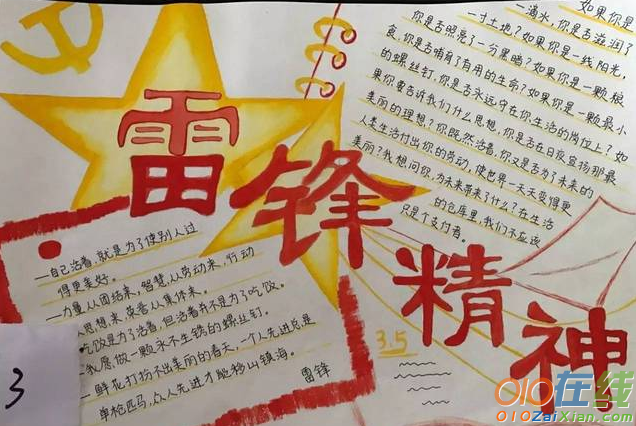 雷锋精神
如果你是
一滴水,你是否滋润了
一寸土地?如果你是一线阳光,
你是否照亮了一分黑暗?如果你是一颗粮
食,你是否哺育了有用的生命?如果你是一颗最小
的螺丝钉,你是否永远守在你生活的岗位上?如
果你要告诉我们什么思想,你是否在日夜宣扬那最
美丽的理想?你既然活着,你又是否为了未来的
人类生活付出你的劳动,使世界一天天变得更
美丽?我想问你,为未来带来了什么?在生活
的仓库里,我们不应该
只是个支付者。
一自己活着,就是为了使别人过
得更美好。
一力量从团结来,智慧从劳动来,行动
从思想来,荣誉从集体来。
吃饭是为了活着,但活着并不是为了吃饭。
我愿做一颗永不生锈的螺丝钉。
一鲜花打扮不出美丽的春天,一个人先进总是
单枪匹马,众人先进才能移山镇海。
雷锋
3.5
3
010在线
010ZaiXian.com